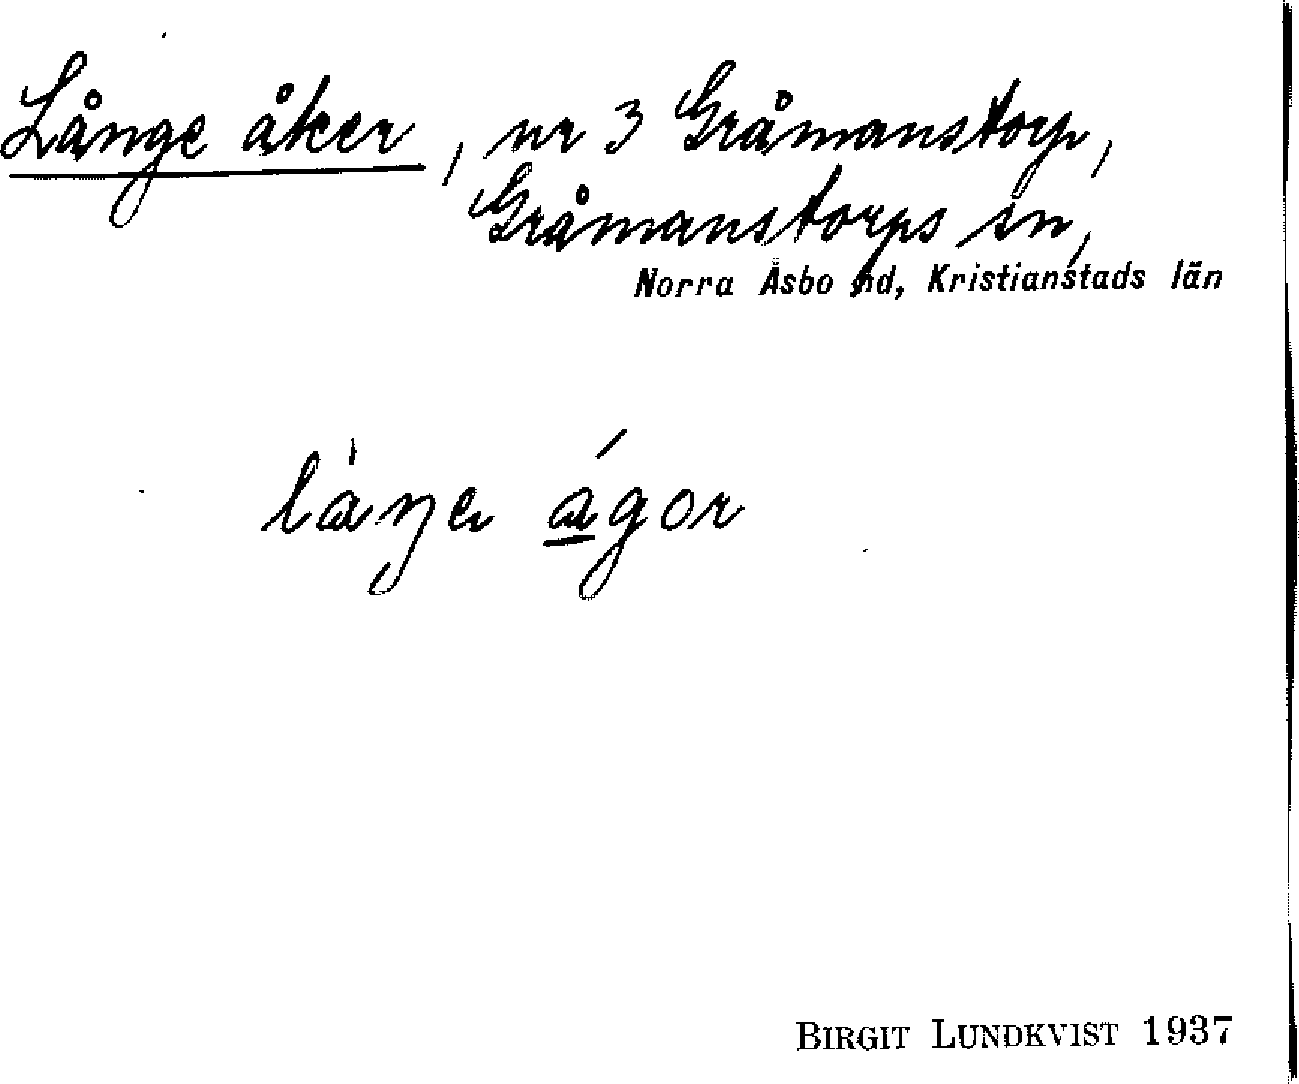 Långe åker, nr 3 Gråmanstorp,
Gråmanstorps sn,
Norra Åsbo hd, Kristianstads län
làŋe ágor
BIRGIT LUNDKVIST 1937